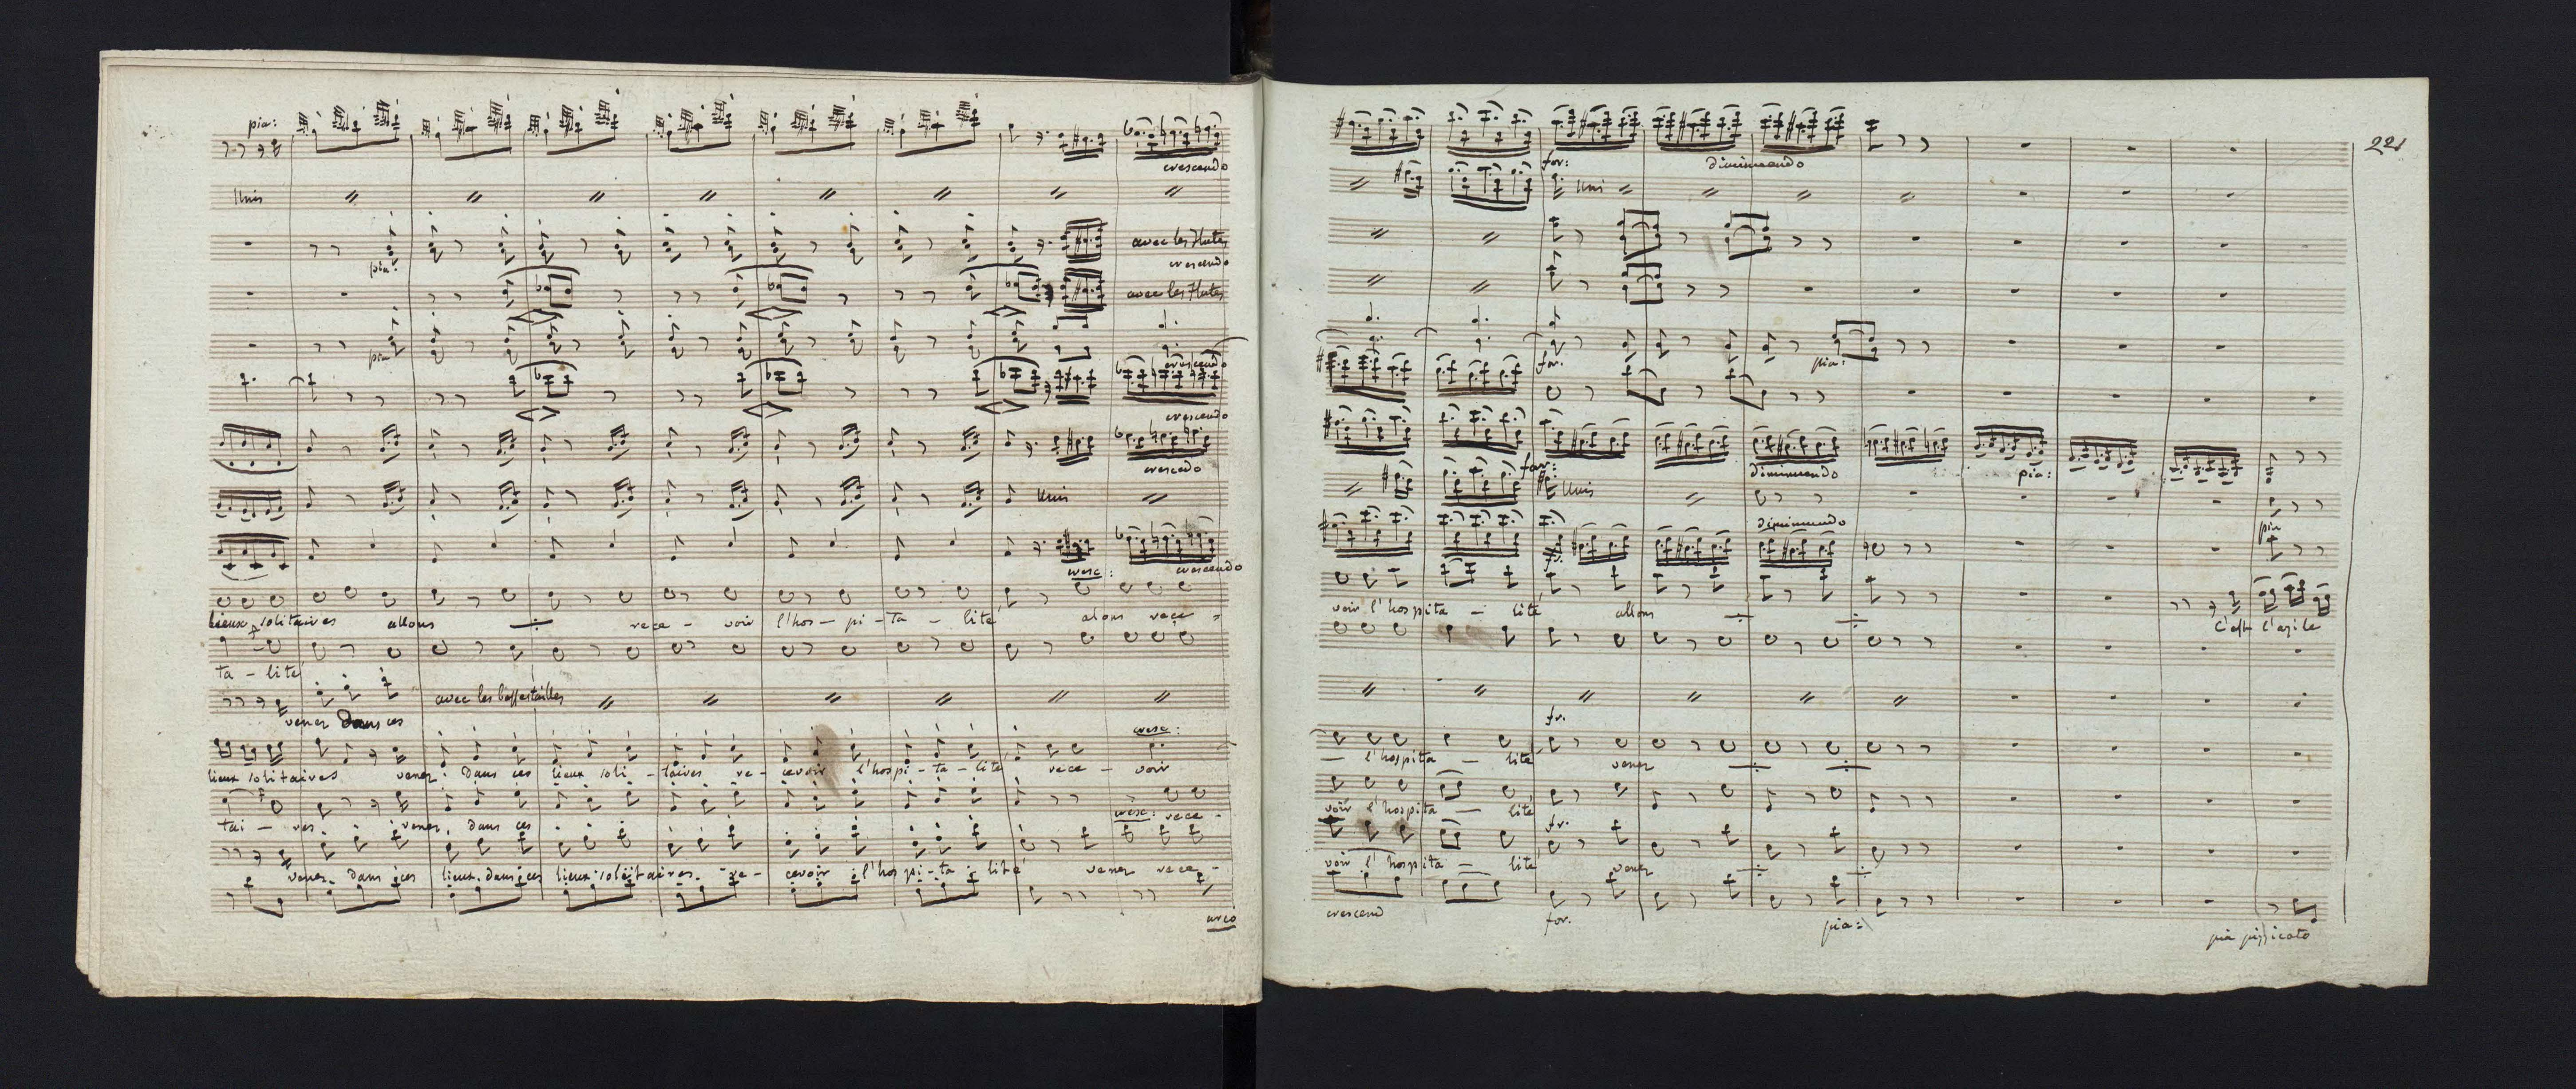 pia:
crescendo
Unis
avec les flutes
pia:
crescendo
avec les flutes
pia
crescendo
crescendo
crescedo
Unis
cresc: crescendo
lieux solitaires allons rece - voir l'hos - pi - ta - lité alons rece
ta - lité
avec les bassestailles
venez dans ces
cresc:
lieux solitaires venez dans ces lieux soli - taires re - cevoir l'hospi - ta - lité rece - voir
tai - res venez dans ces cresc: rece -
venez dans ces lieux dans ces lieux solitaires re - cevoir l'hospi - ta - lité venez rece -
arco
221
for: diminuendo
Uni
for. pia:
for:
diminuendo pia:
Unis
diminuendo pia
voir l'hospita - lité allons
C'est l'azile
fr.
- l'hospita - lité venez
voir l'hospita - lité
fr.
voir l'hospita - lité venez
crescend for. pia: pia pizzicato